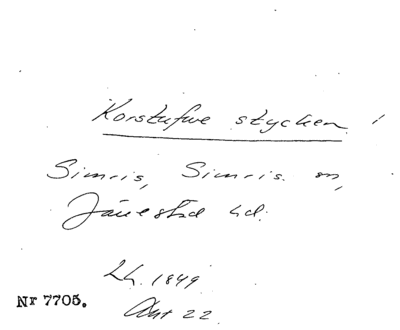 Korstufwe stycken
Simris, Simris. sn,
Järrestad hd.
Lh. 1849
Nr 7705.
Akt 22